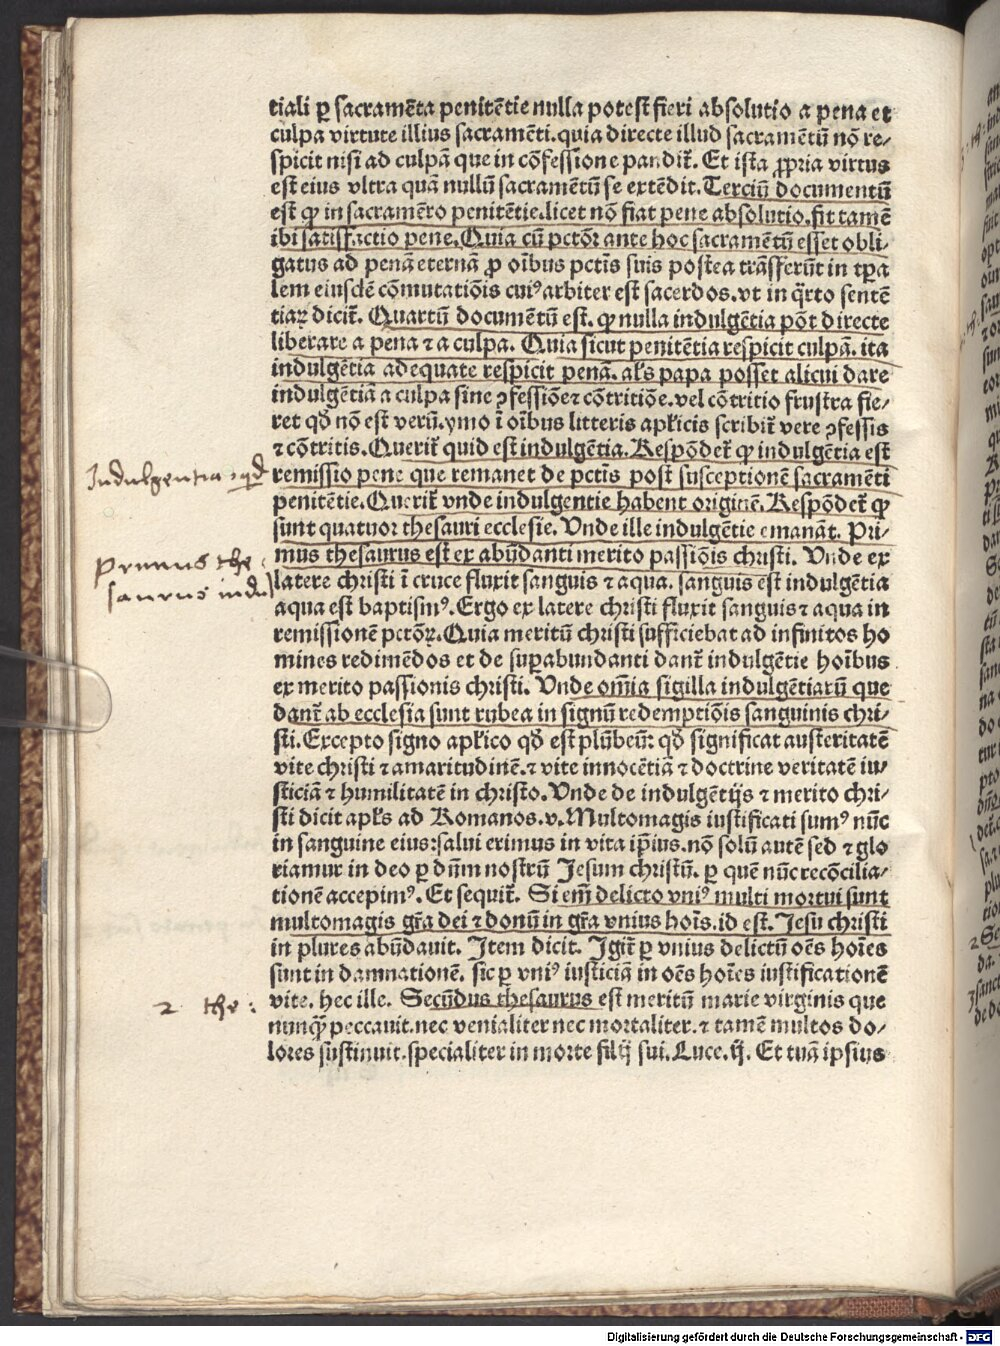 tiali ꝑ sacramēta penitētie nulla potest fieri absolutio a pena et
culpa virtute illius sacramēti. quia directe illud sacramētū nō re/
spicit nisi ad culpā que in cōfessione pandit᷑. Et ista ꝓpria virtus
est eius vltra quā nullū sacramētū se extēdit. Terciū documentū
est ꝙ in sacramēro penitētie. licet nō fiat pene absolutio. fit tamē
ibi satisfactio pene. Quia cū pctōꝛ ante hoc sacramētū esset obli/
gatus ad penā eternā ꝓ oībus pctīs suis postea trāsferūt in tꝑa
lem eiusdē cōmutatiōis cuiꝰ arbiter est sacerdos. vt in q̄rto sentē
tiaꝝ dicit᷑. Quartū documētū est. ꝙ nulla indulgētia pōt directe
liberare a pena ⁊ a culpa. Quia sicut penitētia respicit culpā. ita
indulgētia adequate respicit penā. al̓s papa posset alicui dare
indulgētiā a culpa sine ꝯfessiōe ⁊ cōtritiōe. vel cōtritio frustra fie/
ret qḋ nō est verū. ymo ī oībus litteris apl̓icis scribit᷑ vere ꝯfessis
⁊ cōtritis. Querit᷑ quid est indulgētia. Respōdet᷑ ꝙ indulgētia est
Indulgentia qd
remissio pene que remanet de pctīs post susceptionē sacramēti
penitētie. Querit᷑ vnde indulgentie habent originē. Respōdet᷑ ꝙ
sunt quatuor thesauri ecclesie. Vnde ille indulgētie emanāt. Pri/
Primus the
saurus indul
mus thesaurus est ex abūdanti merito passiōis christi. Vnde ex
latere christi ī cruce fluxit sanguis ⁊ aqua. sanguis est indulgētia
aqua est baptismꝰ. Ergo ex latere christi fluxit sanguis ⁊ aqua in
remissionē pctōꝝ. Quia meritū christi sufficiebat ad infinitos ho
mines redimēdos et de suꝑabundanti dant᷑ indulgētie hoībus
ex merito passionis christi. Vnde om̄ia sigilla indulgētiarū que
dant᷑ ab ecclesia sunt rubea in signū redemptiōis sanguinis chri/
sti. Excepto signo apl̓ico qḋ est plūbeū: qḋ significat austeritatē
vite christi ⁊ amaritudinē. ⁊ vite innocētiā ⁊ doctrine veritatē iu/
sticiā ⁊ humilitatē in christo. Vnde de indulgētijs ⁊ merito chri/
sti dicit apl̓s ad Romanos. v. Multomagis iustificati sumꝰ nūc
in sanguine eius: salui erimus in vita ip̄ius. nō solū autē sed ⁊ glo
riamur in deo ꝑ dn̄m nostrū Jesum christū. ꝑ quē nūc recōcilia/
tionē accepimꝰ. Et sequit᷑. Si em̄ delicto vniꝰ multi mortui sunt
multomagis gr̄a dei ⁊ donū in gr̄a vnius hoīs. id est. Jesu christi
in plures abūdauit. Item dicit. Igit᷑ ꝑ vnius delictū oēs hoīes
sunt in damnationē. sic ꝑ vniꝰ iusticiā in oēs hoīes iustificationē
2 the:
vite. hec ille. Secūdus thesaurus est meritū marie virginis que
nunq̄ peccauit. nec venialiter nec mortaliter. ⁊ tamē multos do/
lores sustinuit. specialiter in morte filij sui. Luce. ij. Et tuā ipsius
Digitalisierung gefördert durch die Deutsche Forschungsgemeinschaft - DFG